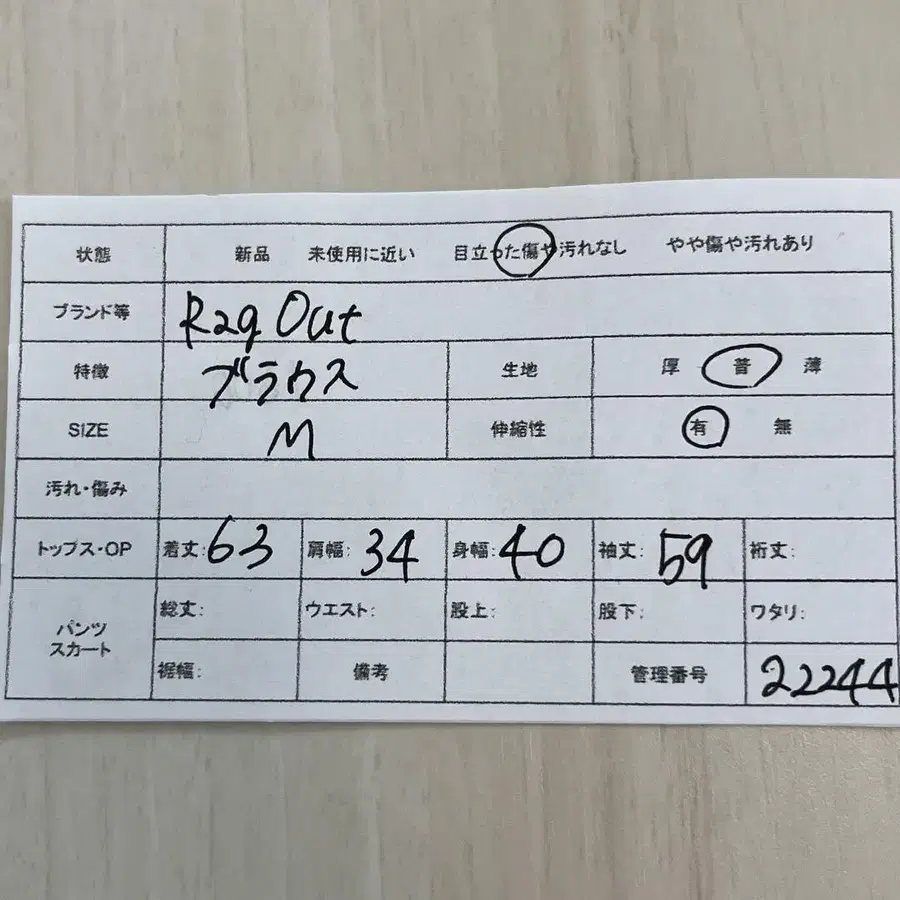 状態 新品 未使用に近い 目立った傷や汚れなし やや傷や汚れあり
ブランド等 Rag Out
特徴 ブラウス 生地 厚 普 薄
SIZE M 伸縮性 有 無
汚れ・傷み
トップス・OP 着丈:63 肩幅:34 身幅:40 袖丈:59 裄丈:
パンツ
スカート
総丈: ウエスト: 股上: 股下: ワタリ:
裾幅: 備考 管理番号 22244